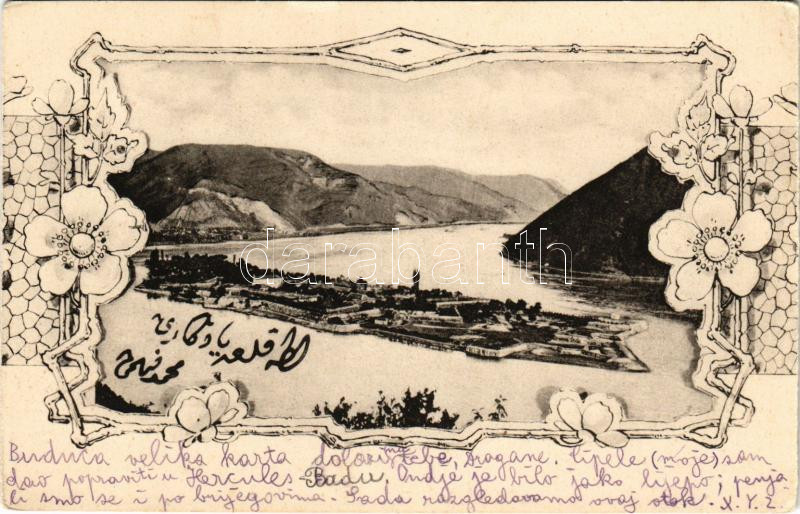 darabanth
اطه قلعه یادكاري
محمد
Buduća velika karta tebe, dragane. Cipele (moje) sam
dao popraviti u Hercules-Badu. Ondje je bilo jako lijepo; penja
li smo se i po brijegovima. Sada razgledavamo ovaj otok. X.Y.Z.